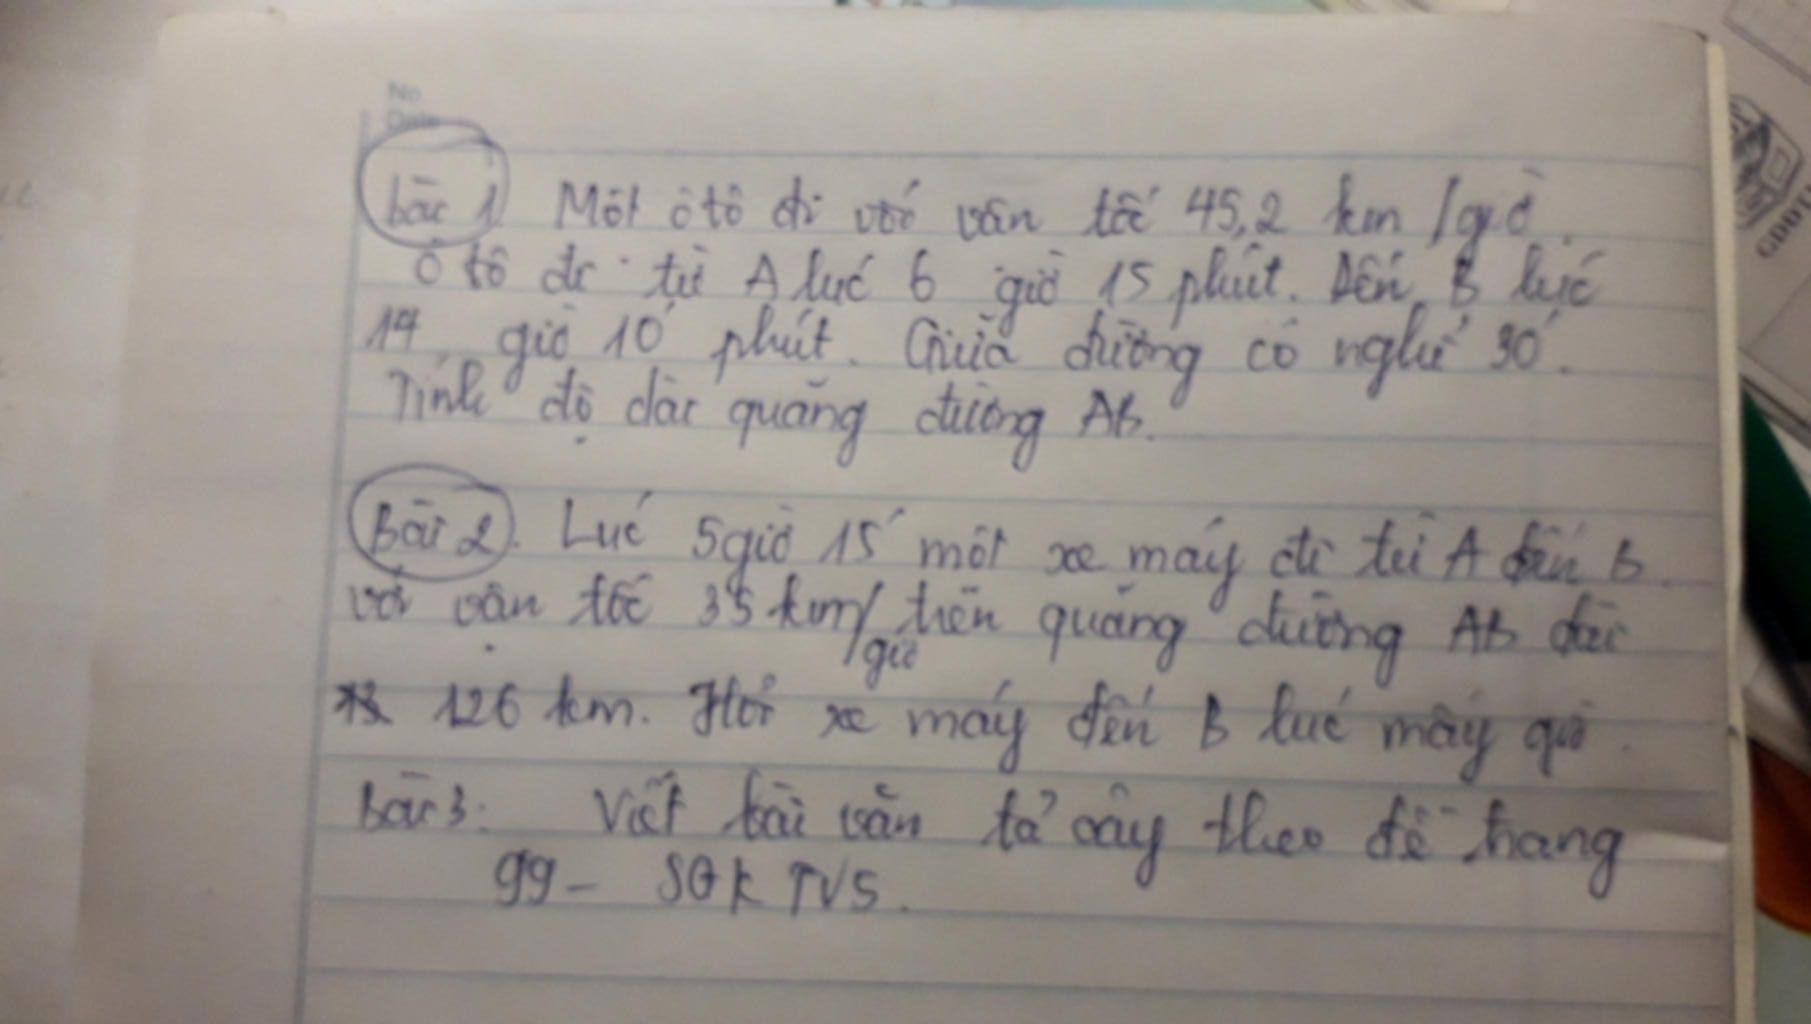 No.
Date
bài 1. Một ô tô đi với vận tốc 45,2 km/giờ.
Ô tô đi từ A lúc 6 giờ 15 phút. Đến B lúc
14 giờ 10 phút. Giữa đường có nghỉ 30'.
Tính độ dài quãng đường AB.
Bài 2. Lúc 5 giờ 15' một xe máy đi từ A đến B
với vận tốc 35 km/giờ trên quãng đường AB dài
126 km. Hỏi xe máy đến B lúc mấy giờ.
Bài 3: Viết bài văn tả cây theo đề trang
99 - SGK TV5.